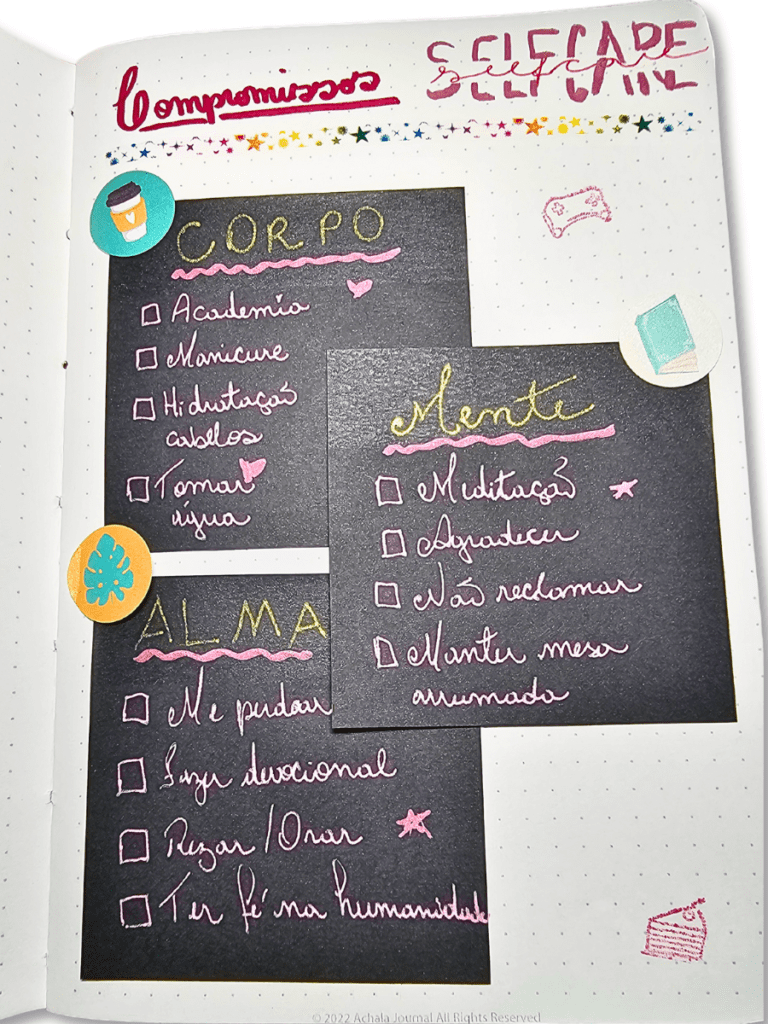 Compromissos
SELFCARE
selfcare
CORPO
Academia
Manicure
Hidratação
cabelos
Tomar
água
Mente
Meditação
Agradecer
Não reclamar
Manter mesa
arrumada
ALMA
Me perdoar
Fazer devocional
Rezar/Orar
Ter fé na humanidade
© 2022 Achala Journal All Rights Reserved